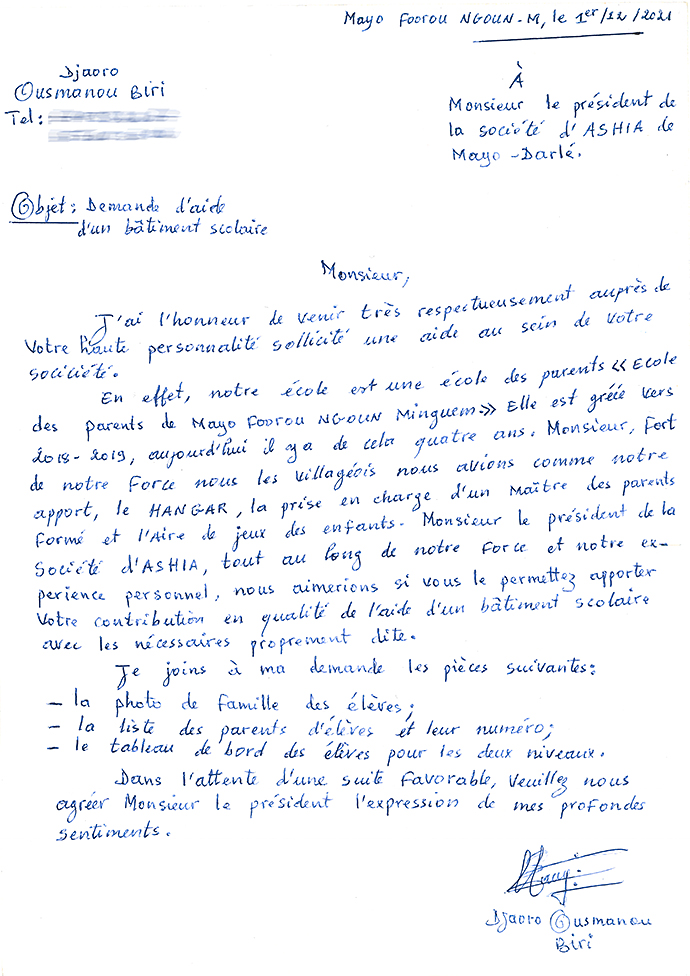 Mayo Foorou NGOUN-M, le 1er/12/2021
Djaoro
Ousmanou Biri
Tel:
À
Monsieur le président de
la société d'ASHIA de
Mayo-Darlé.
Objet: Demande d'aide
d'un bâtiment scolaire
Monsieur,
J'ai l'honneur de venir très respectueusement auprès de
Votre haute personnalité sollicité une aide au sein de votre
sociciété.
En effet, notre école est une école des parents « Ecole
des parents de Mayo Foorou NGOUN Minguem » Elle est gréée vers
2018-2019, aujourd'hui il ya de cela quatre ans. Monsieur, Fort
de notre Force nous les villageois nous avions comme notre
apport, le HANGAR, la prise en charge d'un Maître des parents
Formé et l'Aire de jeux des enfants. Monsieur le président de la
Société d'ASHIA, tout au long de notre Force et notre ex-
perience personnel, nous aimerions si vous le permettez apporter
Votre contribution en qualité de l'aide d'un bâtiment scolaire
avec les nécessaires proprement dite.
Je joins à ma demande les pièces suivantes:
- la photo de Famille des élèves;
- la liste des parents d'élèves et leur numéro;
- le tableau de bord des élèves pour les deux niveaux.
Dans l'attente d'une suite Favorable, Veuillez nous
agréer Monsieur le président l'expression de mes profondes
sentiments.
Djaoro Ousmanou
Biri